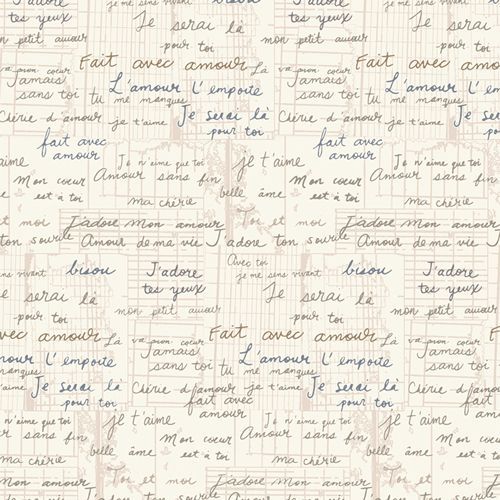 J'adore
tes yeux
mon petit amour
je me sens vivant
bisou
Je serai là
pour toi
J'adore
tes yeux
mon petit amour
Fait avec amour
Là où va mon cœur
Jamais
sans toi
L'amour l'emporte
tu me manques
Chérie d'amour
je t'aime
Je serai là
pour toi
fait avec
amour
Je n'aime que toi
Amour sans fin
je t'aime
Mon cœur
est à toi
belle âme
ma chérie
Toi et moi
J'adore
ton sourire
Mon amour
Amour de ma vie
Avec toi
je me sens vivant
bisou
J'adore
tes yeux
Je serai là
pour toi
mon petit amour
Fait avec amour
Jamais
sans toi
L'amour l'emporte
tu me manques
je t'aime
Je serai là
pour toi
Chérie d'amour
fait avec
amour
je t'aime
Je n'aime que toi
Amour sans fin
Mon cœur
est à toi
belle âme
ma chérie
Toi et moi
J'adore mon amour